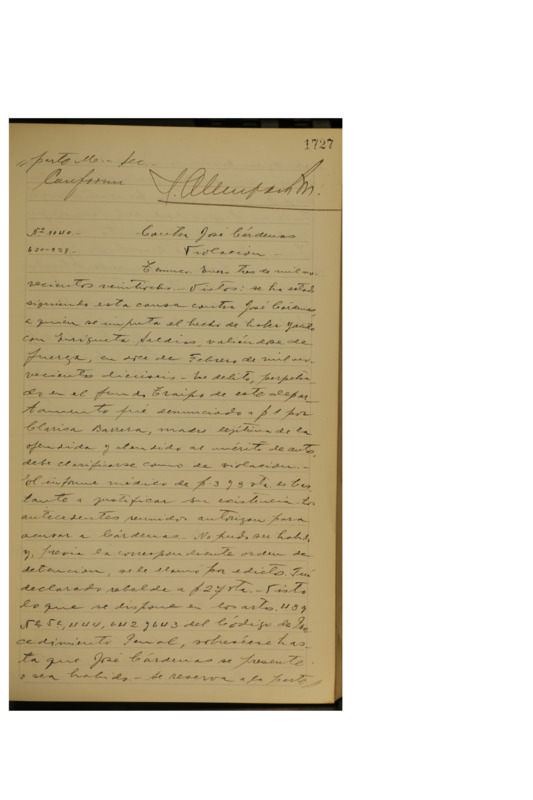 1727
parte M. - Sec. -
Conforme
Nº 1140.- Contra José Cárdenas
Violación -
Temuco, Enero tres de mil no-
vecientos veintiocho. - Vistos: se ha estado
siguiendo esta causa contra José Cárdenas,
a quien se imputa el hecho de haber yacido
con Enriqueta Saldías, valiéndose de
fuerza, en doce de Febrero de mil no-
vecientos dieciseis. - Ese delito, perpetra-
do en el fundo Traipo de este depar-
tamento fué denunciado a f 1 por
Clarisa Barrera, madre lejítima de la
ofendida y atendido al mérito de autos,
debe clasificarse como de violacion. -
El informe médico de f 3 y 3 vta. es bas-
tante a justificar su existencia los
antecedentes reunidos autorizan para
acusar a Cárdenas. - No pudo ser habido
y, previa la correspondiente orden de
detencion, se le llamó por edictos. Fué
declarado rebelde a f 27 vta. - Visto
lo que se dispone en los arts. 439
Nº 5º, 444, 642 y 643 del Código de Pro
cedimiento Penal, sobreséese has-
ta que José Cárdenas se presente
o sea habido. - Se reserva a la parte